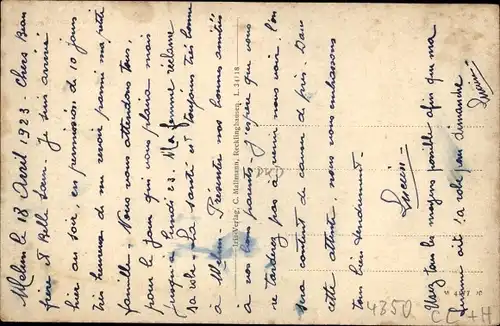 Melun le 18 Avril 1923. Chers Beau
frère et Belle Sœur. Je suis arrivé
hier au soir, en permission de 10 jours
très heureux de me revoir parmi ma petite
famille. Nous vous attendons tous,
pour le jour qui vous plaira mais
jusqu'à Lundi 23. Ma femme réclame
sa robe. La santé est toujours très bonne
à Melun. Présenter nos bonnes amitiés
à vos bons parents. J'espère que vous
ne tarderez pas à venir nous voir. l'on
sera content de causer de près. Dans
cette attente, nous vous embrassons
tous bien tendrement.
Lucien
Usez tous les moyens possible afin que ma
femme ait sa robe pour dimanche
Lucien
Iris-Verlag, C. Mallmann, Recklinghausen, L. 34/18
4350